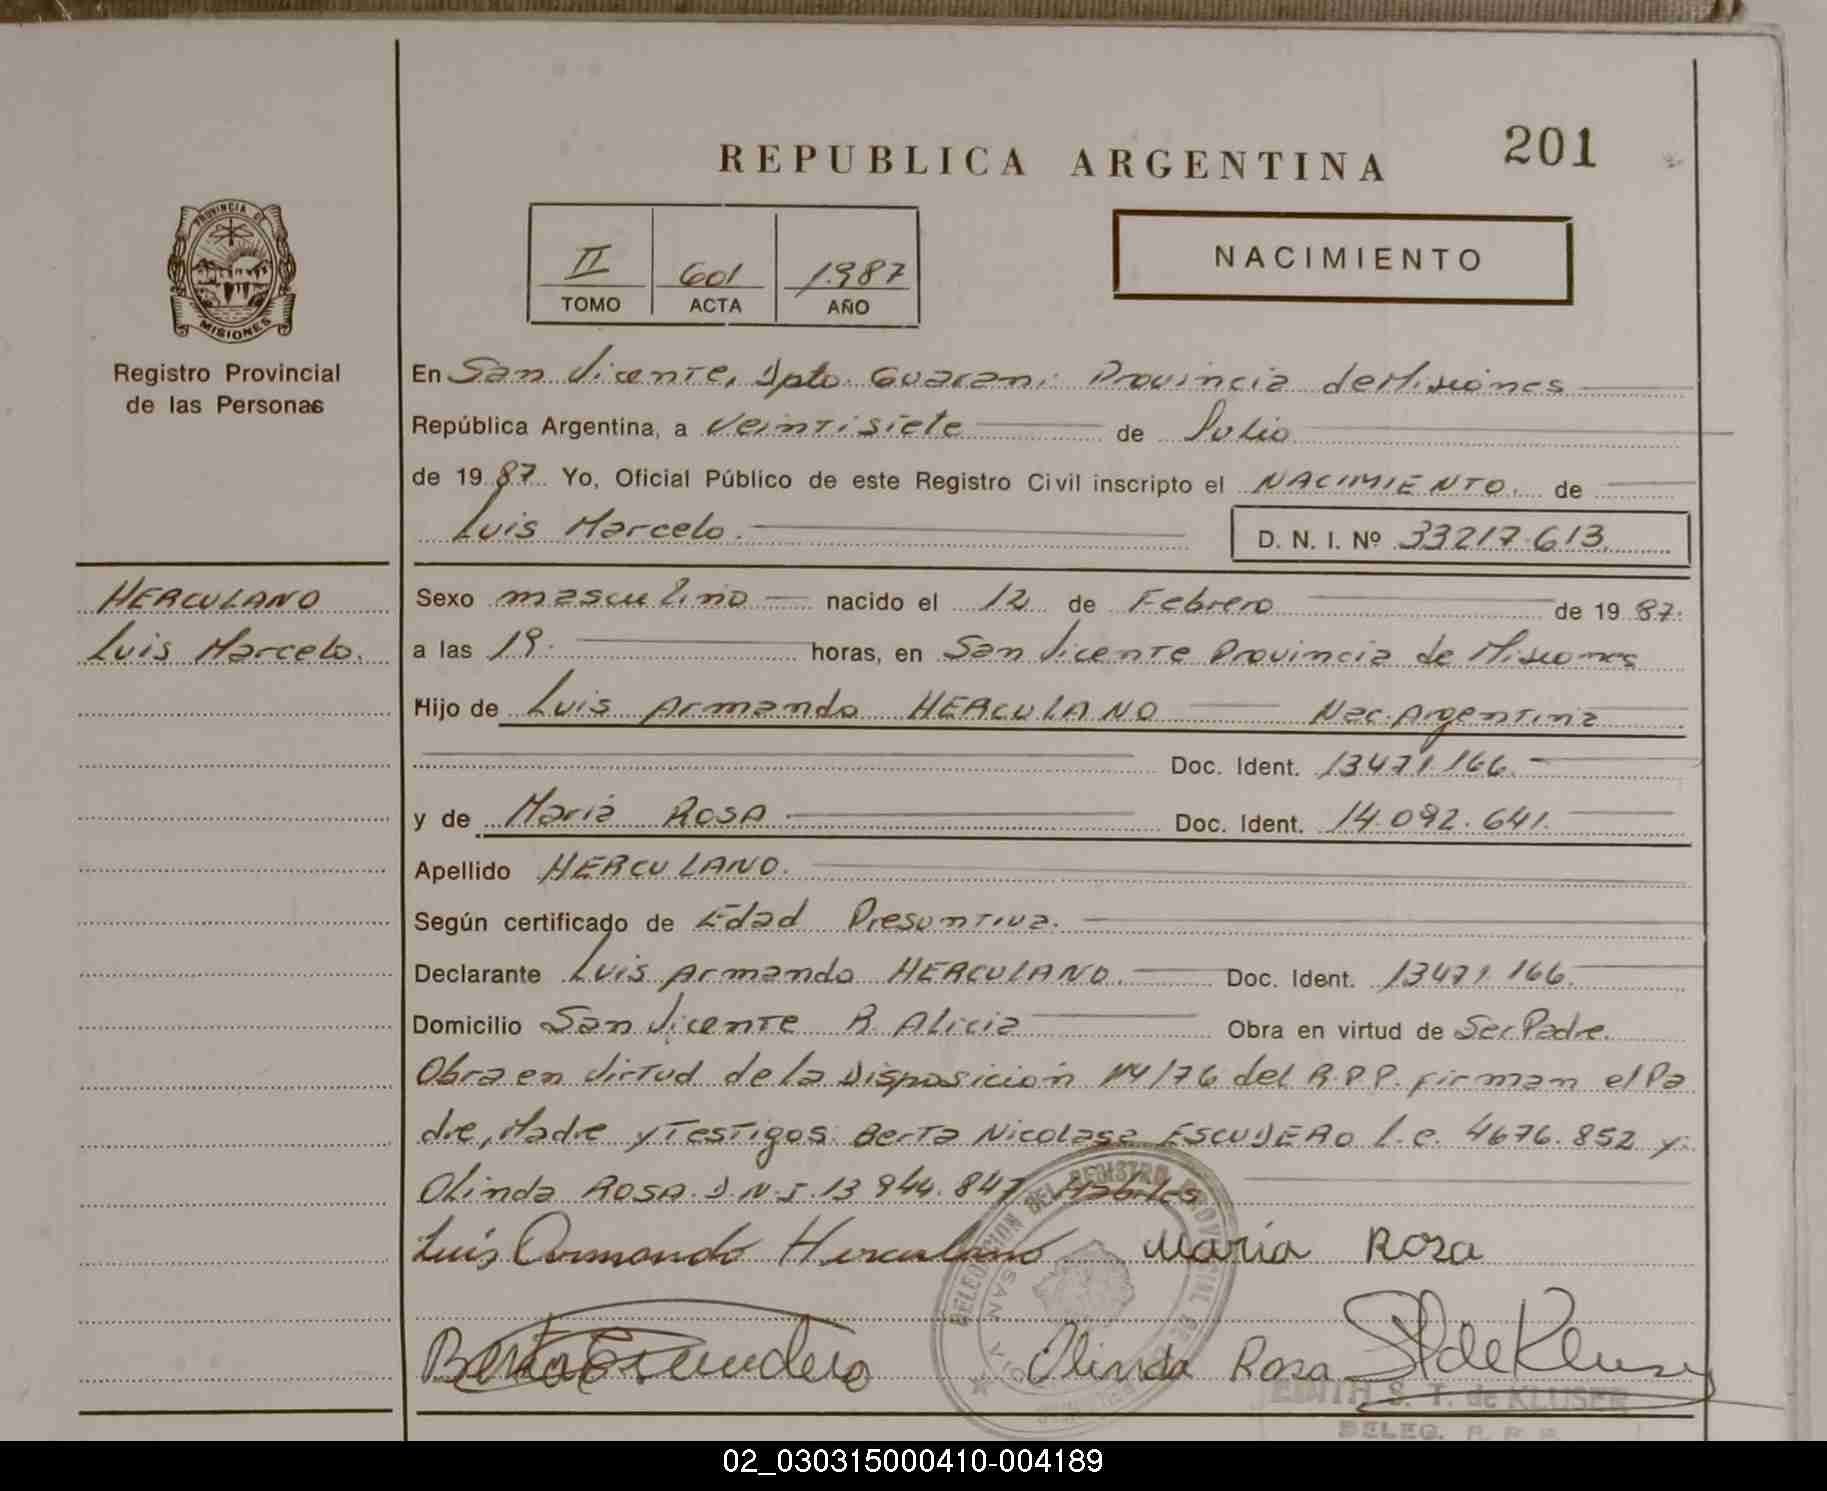 201
REPUBLICA ARGENTINA
PROVINCIA DE
MISIONES
Registro Provincial
de las Personas
II 601 1987
TOMO ACTA AÑO
NACIMIENTO
En San Vicente, Dpto. Guarani Provincia de Misiones
República Argentina, a veintisiete de Julio
de 1987 Yo, Oficial Público de este Registro Civil inscripto el NACIMIENTO. de
Luis Marcelo.
D. N. I. Nº 33217.613
HERCULANO
Luis Marcelo.
Sexo masculino nacido el 12 de Febrero de 1987.
a las 19. horas, en San Vicente Provincia de Misiones
Hijo de Luis Armando HERCULANO Nac. Argentina
Doc. Ident. 13471.166.
y de Maria ROSA Doc. Ident. 14.092.641.
Apellido HERCULANO.
Según certificado de Edad Presuntiva.
Declarante Luis Armando HERCULANO. Doc. Ident. 13471.166.
Domicilio San Vicente R. Alicia Obra en virtud de Ser Padre.
Obra en virtud de la Disposición 14/76 del R.P.P. firman el Pa
dre, Madre y Testigos Berta Nicolasa ESCUDERO l.c. 4676.852 y
Olinda ROSA. D.N.I. 13.944.847 Habiles
Luis Armando Herculano Maria Rosa
Berta Escudero Olinda Rosa
DELEGACION DEL REGISTRO PROVINCIAL DE
SAN
EDITH S. T. de KLUSER
DELEG. R. P. P.
02_030315000410-004189